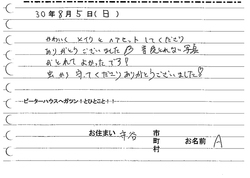 30年8月5日(日)
かわいく メイクと ヘアセット してくださり
ありがとうございました 普段とれない写真
がとれて よかったです!
虫から守ってくださりありがとうございました!
ピーターハウスへガツン!とひとこと!!
お住まい 守谷 市町村 お名前 A